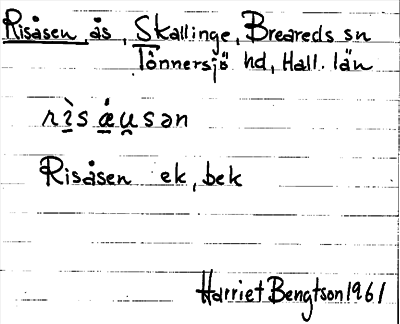 Risåsen, ås, Skallinge, Breareds sn
Tönnersjö hd, Hall. län
rìsǽu̯sən
Risåsen ek, bek
Harriet Bengtson 1961